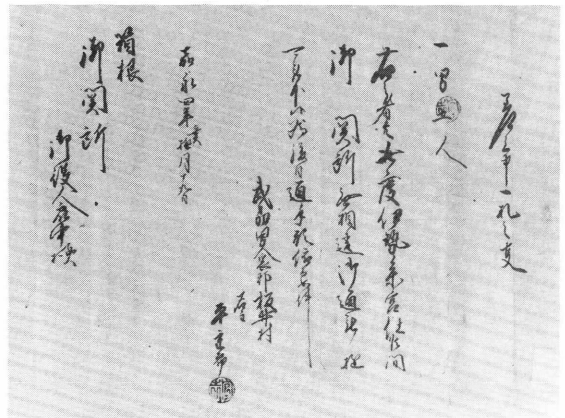 差上申一札之事
一男壱人
右之者今度伊勢参宮仕候間
御関所無相違御通被遊
可被下候為後日通手形依而如件
武州男衾郡板井村
名主
嘉永四年亥極月十九日
箱根
御関所
御役人衆中様